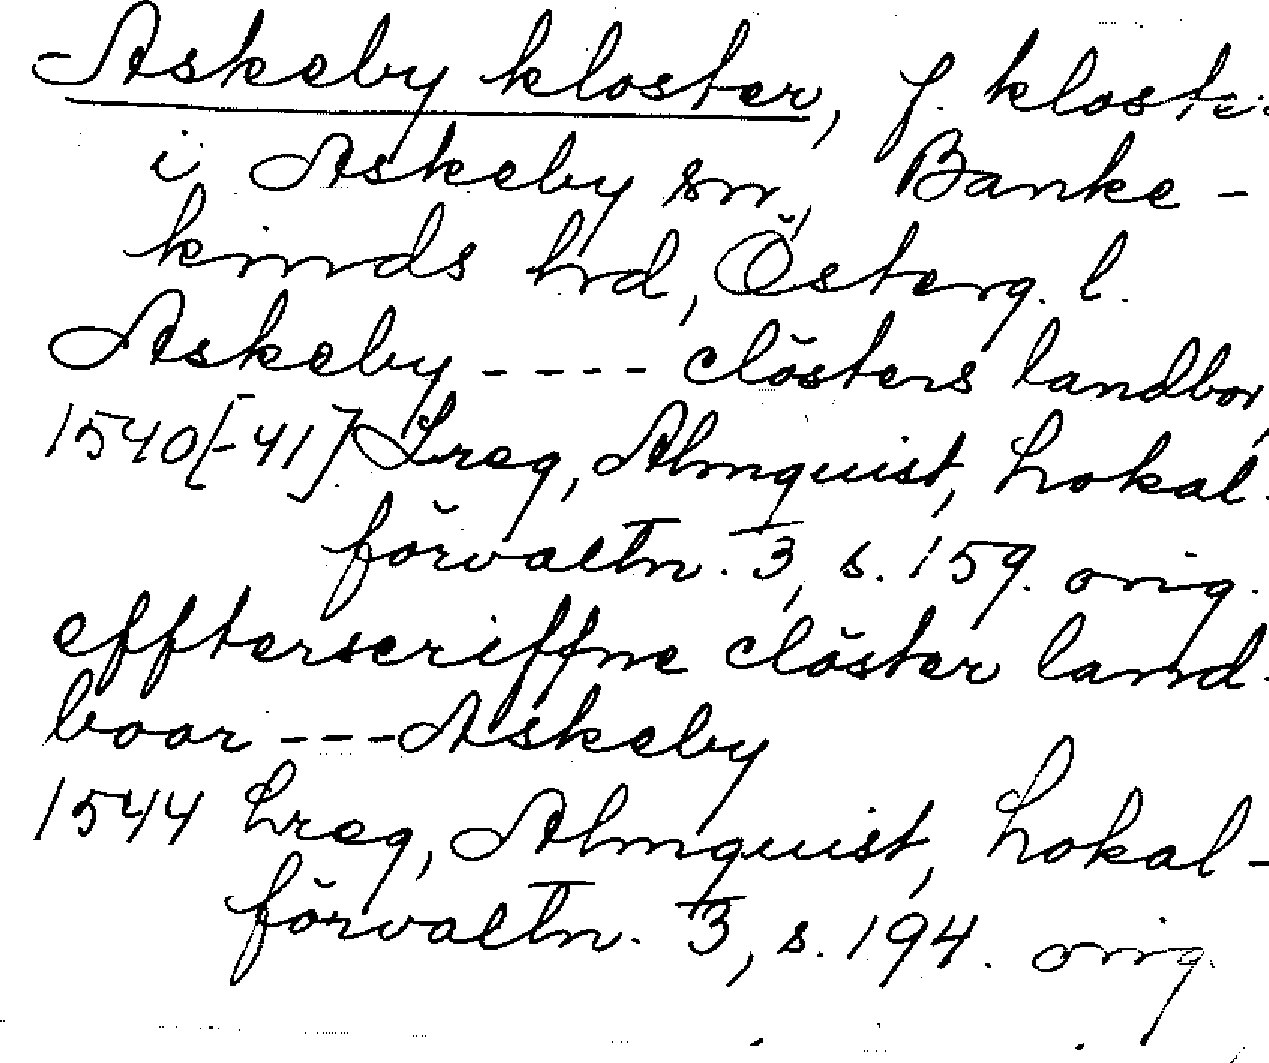 Askeby kloster, f. kloster
i Askeby sn, Banke-
kinds hrd, Österg. l.
Askeby ---- clösters landbor,
1540[-41] Lreg, Almquist, Lokal-
förvaltn. 3, s. 159. orig.
effterscriffne clöster land-
boar --- Askeby
1544 Lreg, Almquist, Lokal-
förvaltn. 3, s. 194. orig.